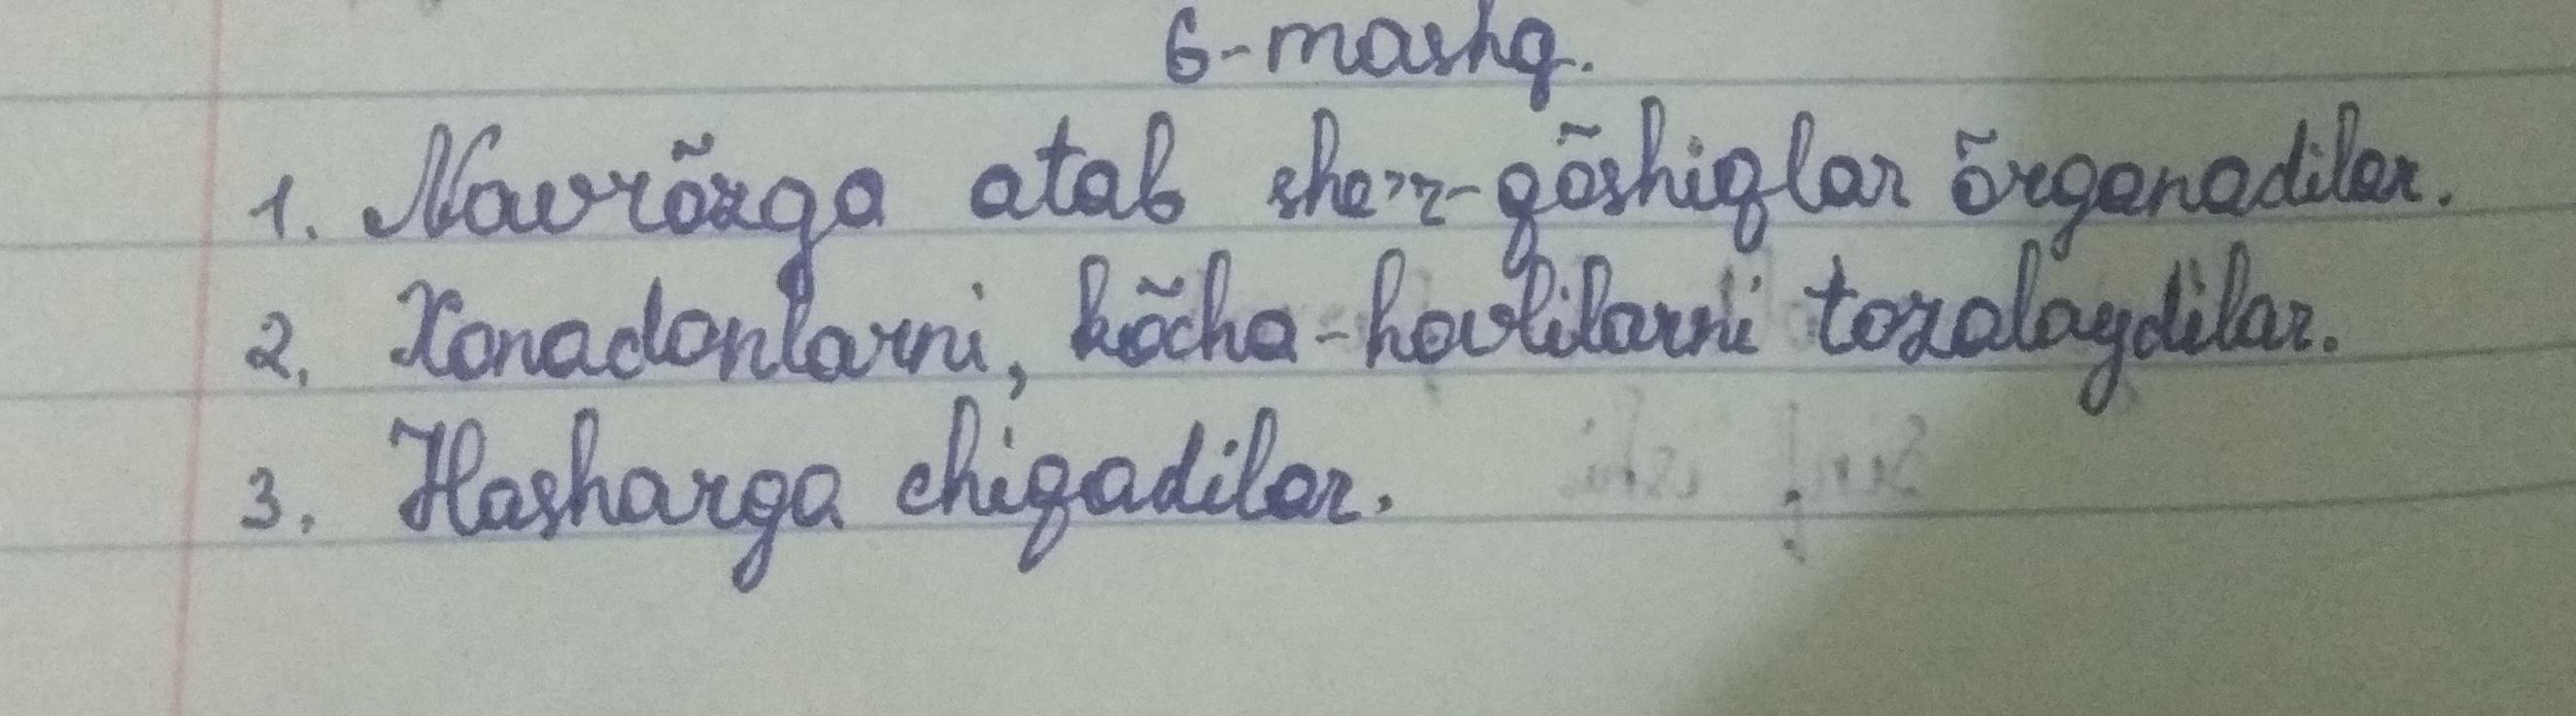 6-mashq.
1. Navrõzga atab she'r-qõshiqlar õrganadilar.
2. Xonadonlarni, kõcha-hovlilarni tozalaydilar.
3. Hasharga chiqadilar.
Sinf ishi